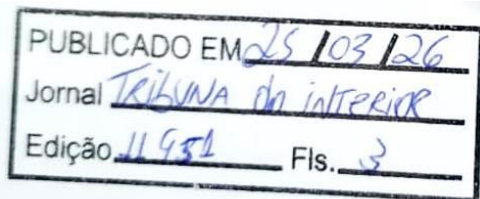 PUBLICADO EM 25/03/26
Jornal TRIBUNA do iNTERIOR
Edição 11951 Fls. 3